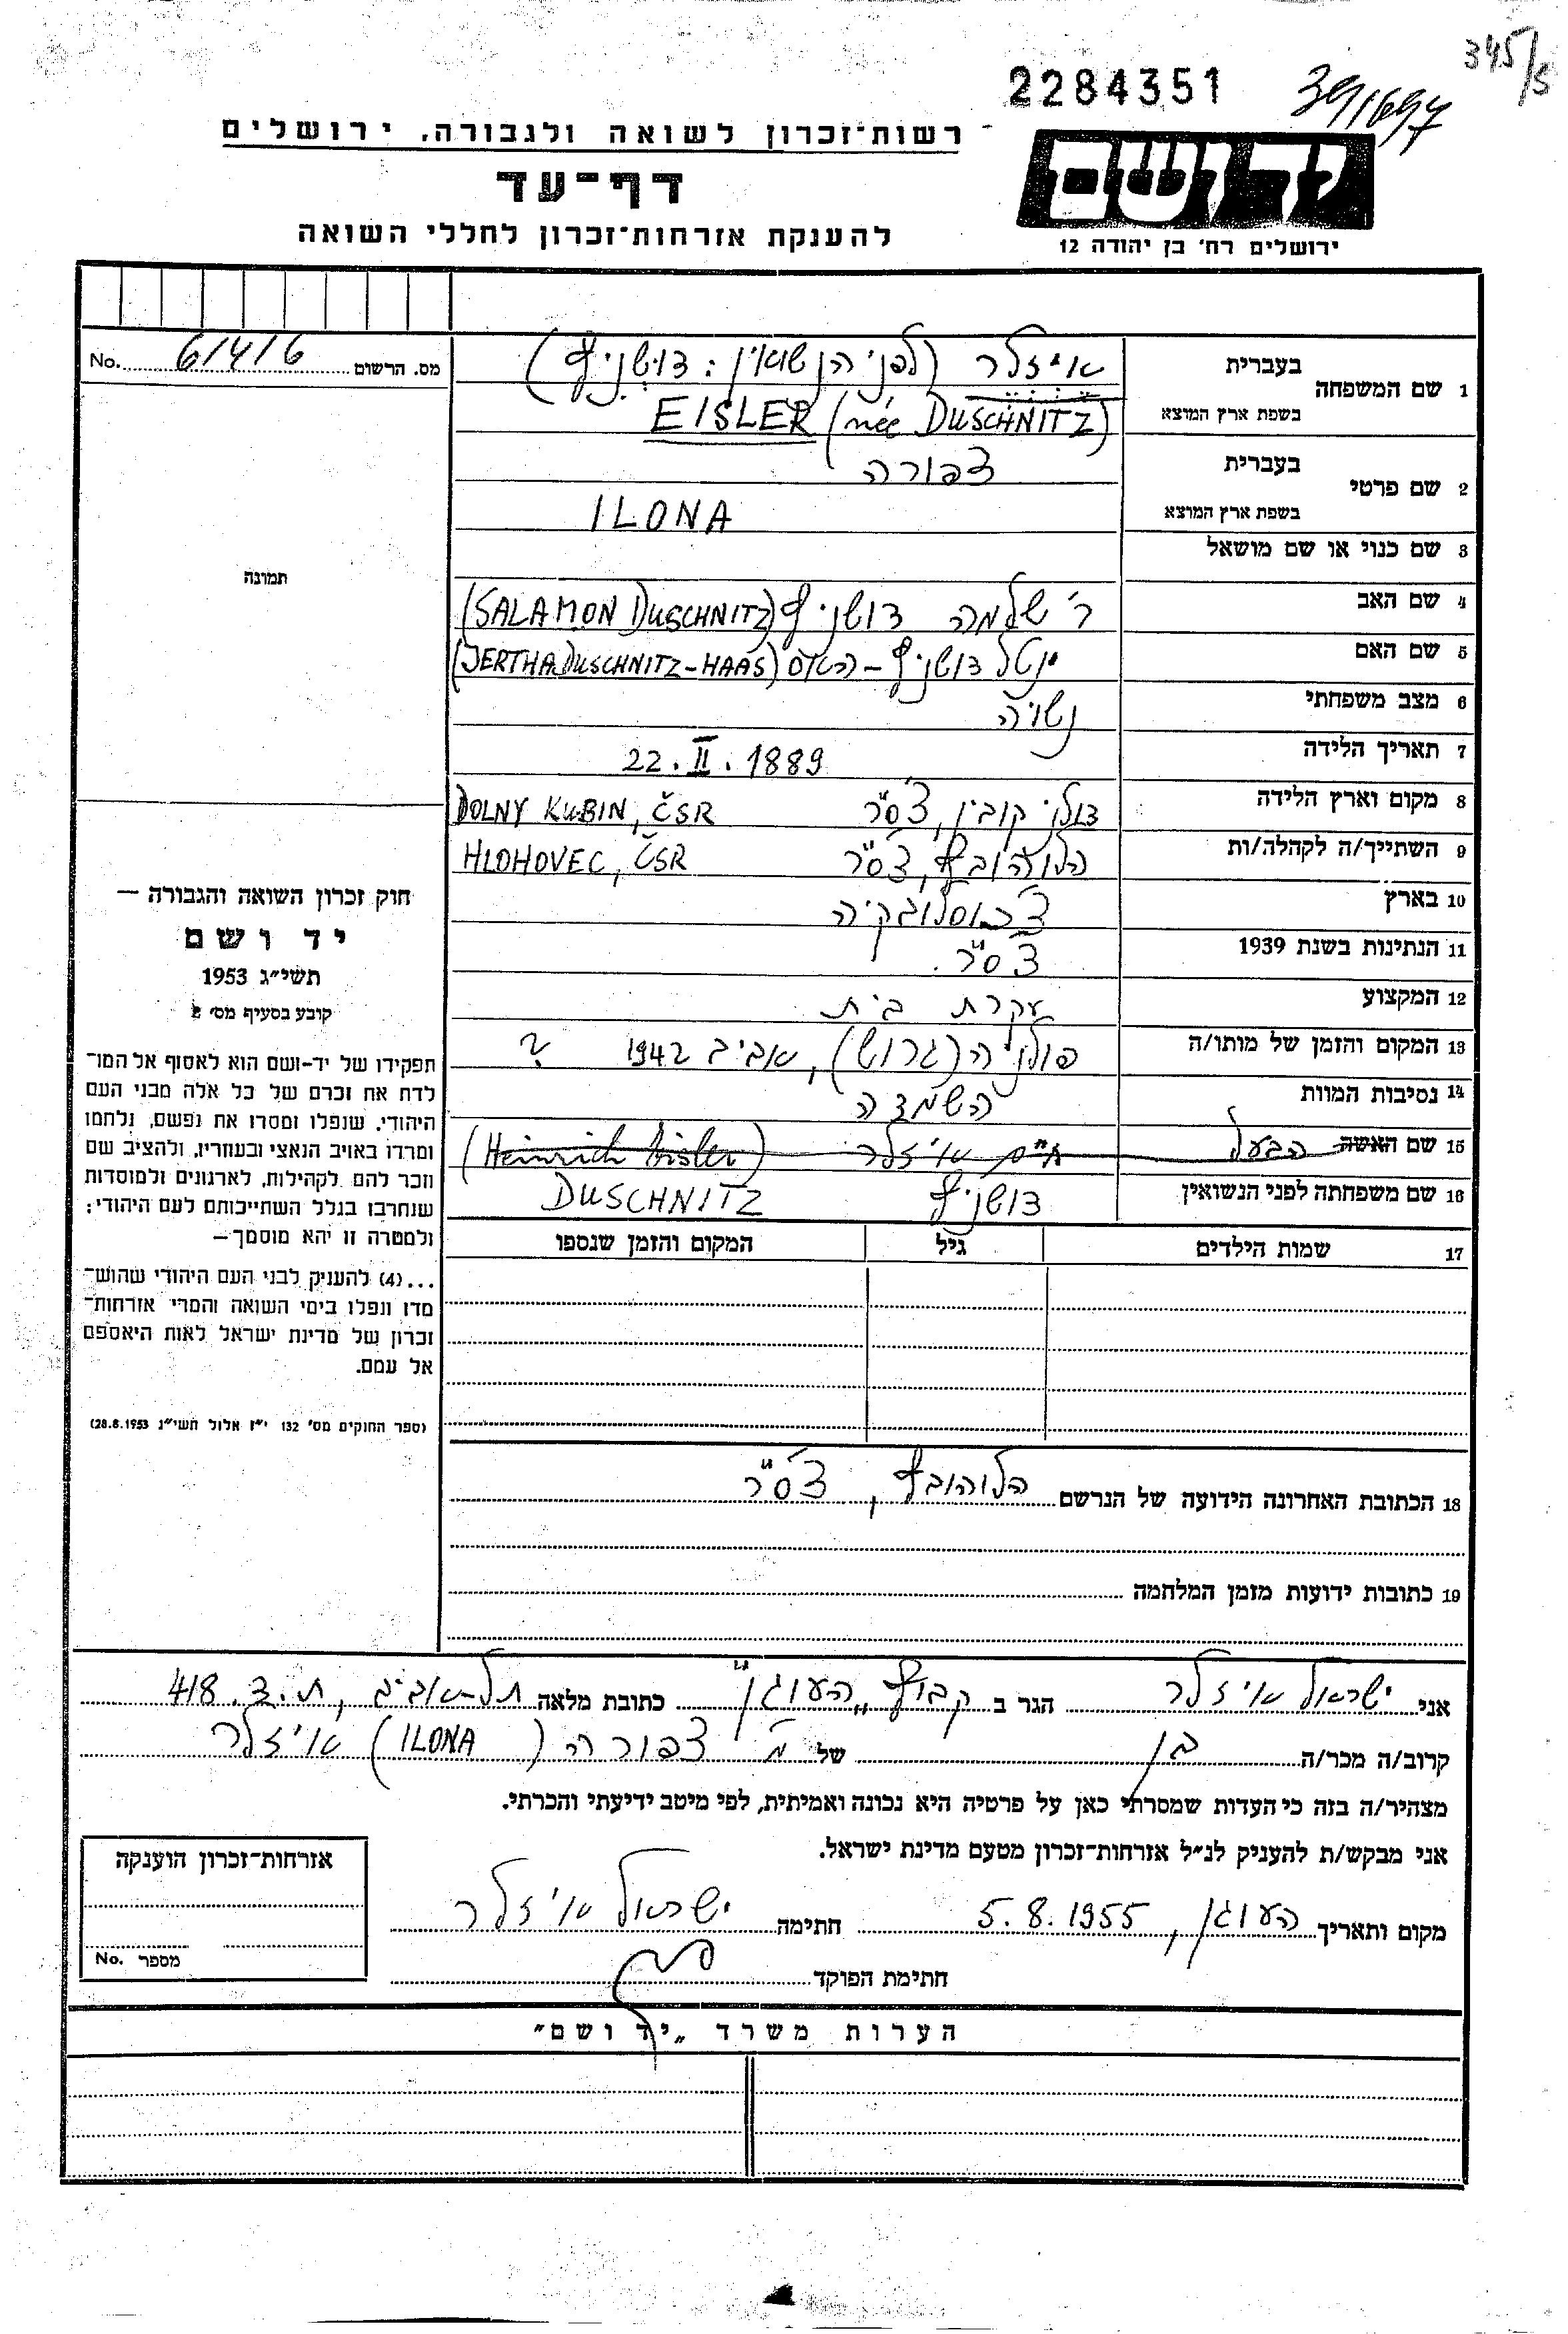 345/5
2284351
391697
רשות־זכרון לשואה ולגבורה, ירושלים
דף־עד
להענקת אזרחות־זכרון לחללי השואה
יד ושם
ירושלים רח' בן יהודה 12
מס. הרשום 61416 No.
1 שם המשפחה
בעברית אייזלר (לפני הנשואין: דושניץ)
בשפת ארץ המוצא EISLER (née DUSCHNITZ)
2 שם פרטי
בעברית צפורה
בשפת ארץ המוצא ILONA
3 שם כנוי או שם מושאל
4 שם האב ר' שלמה דושניץ (SALAMON DUSCHNITZ)
5 שם האם יטל דושניץ – האאס (JERTHA DUSCHNITZ-HAAS)
6 מצב משפחתי נשויה
7 תאריך הלידה 22. II. 1889
8 מקום וארץ הלידה דולני קובין, צ'ס"ר DOLNY KUBIN, ČSR
9 השתייך/ה לקהלה/ות הלוהובץ, צ'ס"ר HLOHOVEC, ČSR
10 בארץ צ'כוסלובקיה
11 הנתינות בשנת 1939 צ'ס"ר.
12 המקצוע עקרת בית
13 המקום והזמן של מותו/ה פולניה (גרוש), אביב 1942 ?
14 נסיבות המוות השמדה
15 שם האשה הבעל אייזלר (Heinrich Eisler)
16 שם משפחתה לפני הנשואין דושניץ DUSCHNITZ
17 שמות הילדים גיל המקום והזמן שנספו
18 הכתובת האחרונה הידועה של הנרשם הלוהובץ, צ'ס"ר
19 כתובות ידועות מזמן המלחמה
תמונה
חוק זכרון השואה והגבורה —
יד ושם
תשי"ג 1953
קובע בסעיף מס' 2
תפקידו של יד-ושם הוא לאסוף אל המו־
לדת את זכרם של כל אלה מבני העם
היהודי, שנפלו ומסרו את נפשם, נלחמו
ומרדו באויב הנאצי ובעוזריו, ולהציב שם
וזכר להם לקהילות, לארגונים ולמוסדות
שנחרבו בגלל השתייכותם לעם היהודי;
ולמטרה זו יהא מוסמך—
...(4) להעניק לבני העם היהודי שהוש־
מדו ונפלו בימי השואה והמרי אזרחות־
זכרון של מדינת ישראל לאות היאספם
אל עמם.
(ספר החוקים מס' 132 י"ז אלול תשי"ג 28.8.1953)
אני ישראל אייזלר הגר ב קבוץ "העוגן" כתובת מלאה תל-אביב, ת.ד. 418
קרוב/ה מכר/ה בן של צפורה (ILONA) אייזלר
מצהיר/ה בזה כי העדות שמסרתי כאן על פרטיה היא נכונה ואמיתית, לפי מיטב ידיעתי והכרתי.
אני מבקש/ת להעניק לנ"ל אזרחות־זכרון מטעם מדינת ישראל.
מקום ותאריך העוגן, 5.8.1955 חתימה ישראל אייזלר
חתימת הפוקד
אזרחות־זכרון הוענקה
מספר No.
הערות משרד "יד ושם"